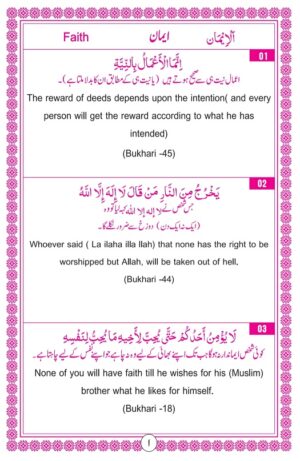 Faith ایمان اَلْإِيْمَان
01
إِنَّمَا الْأَعْمَالُ بِالنِّيَّةِ
اعمال نیت ہی سے صحیح ہوتے ہیں (یا نیت ہی کے مطابق ان کا بدلا ملتا ہے)۔
The reward of deeds depends upon the intention( and every
person will get the reward according to what he has
intended)
(Bukhari -45)
02
يَخْرُجُ مِنَ النَّارِ مَنْ قَالَ لَا إِلٰهَ إِلَّا اللّٰهُ
جس شخص نے لا إله إلا الله کہہ لیا تو وہ
(ایک نہ ایک دن) دوزخ سے ضرور نکلے گا۔
Whoever said ( La ilaha illa llah) that none has the right to be
worshipped but Allah, will be taken out of hell.
(Bukhari -44)
03
لَا يُؤْمِنُ أَحَدُكُمْ حَتّٰى يُحِبَّ لِأَخِيهِ مَا يُحِبُّ لِنَفْسِهِ
کوئی شخص ایماندار نہ ہوگا جب تک اپنے بھائی کے لیے وہ نہ چاہے جو اپنے نفس کے لیے چاہتا ہے۔
None of you will have faith till he wishes for his (Muslim)
brother what he likes for himself.
(Bukhari -18)
1